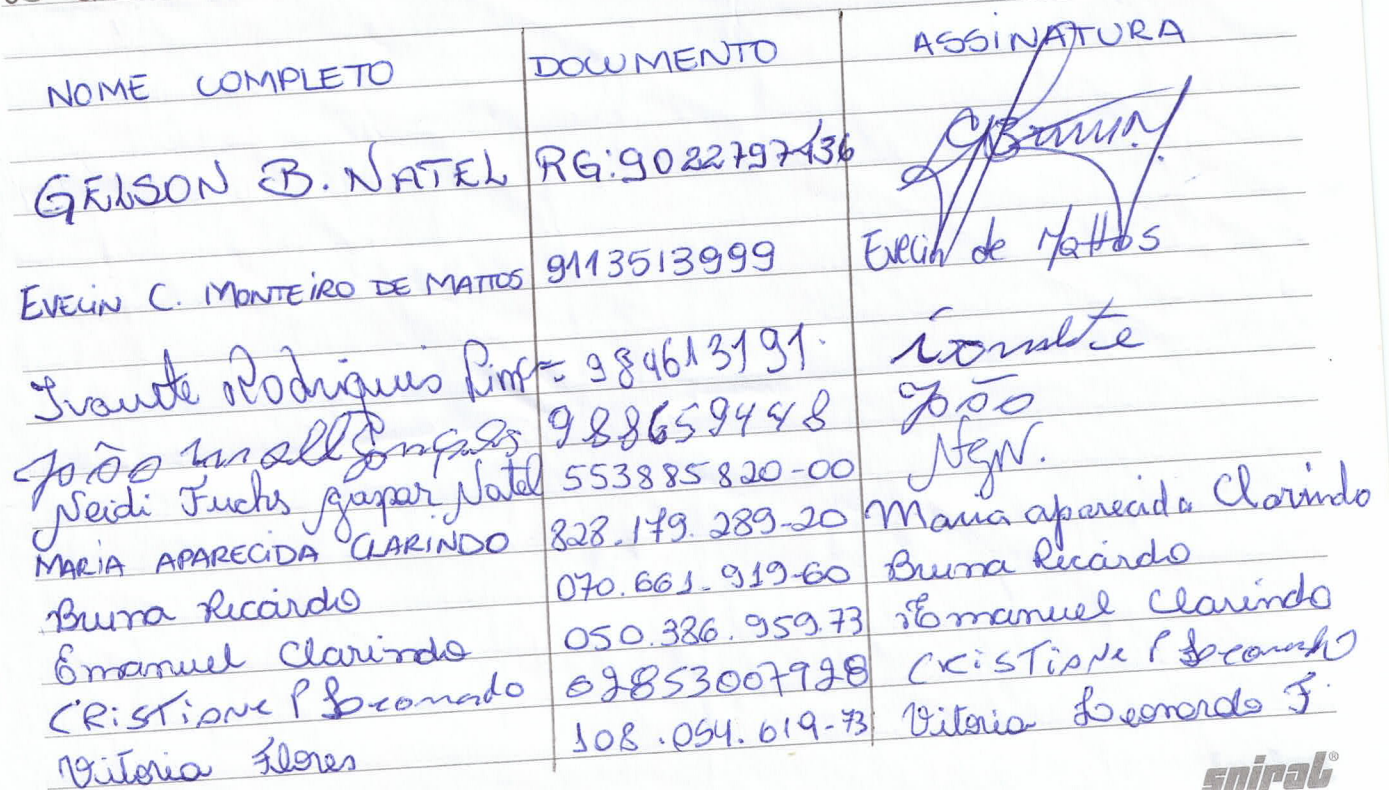 NOME COMPLETO DOCUMENTO ASSINATURA
GELSON B. NATEL RG:9022797436
EVELIN C. MONTEIRO DE MATTOS 9113513999 Evelin de Mattos
Ivonete Rodrigues 984613191.
João 988659448 João
Neidi Fuchs gaspar Natel 553885820-00 NGN.
MARIA APARECIDA CLARINDO 828.179.289-20 Maria aparecida Clarindo
Bruna Ricárdo 070.661.919-60 Bruna Ricárdo
Emanuel Clarindo 050.386.959.73 Emanuel Clarindo
CRISTIANE P Leonardo 02853007928 CRISTIANE P Leonardo
Vitoria Flores 108.054.619-73 Vitoria Leonardo F.
spiral®